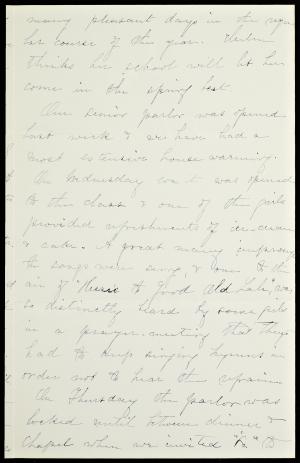 many pleasant days in the regu
lar course of the year. Helen
thinks her school will let her
come in the spring best.
Our Senior parlor was opened
last week & we have had a
most extensive house warming.
On Wednesday eve it was opened
to the class & one of the girls
provided refreshments of ice-cream
& cake. A great many impromp
tu songs were sung, & one to the
air of "Here's to Good Old Yale" was
so distinctly heard by some girls
in a prayer-meeting that they
had to keep singing hymns in
order not to hear the refrain.
On Thursday the parlor was
locked until between dinner &
chapel when we invited